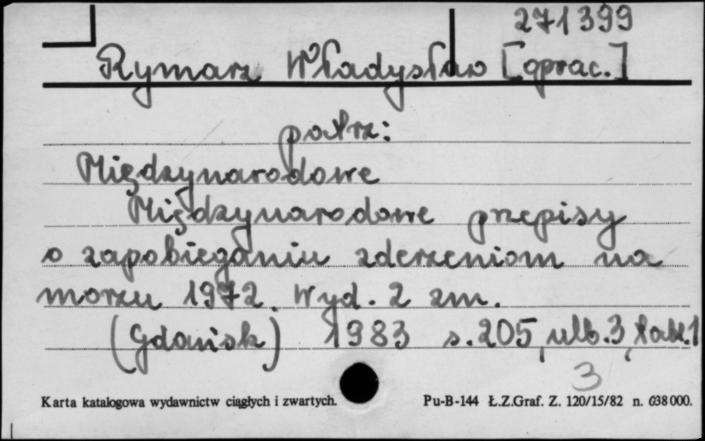 271399
Rymarz Władysław [oprac.]
patrz:
Międzynarodowe
Międzynarodowe przepisy
o zapobieganiu zderzeniom na
morzu 1972. Wyd. 2 zm.
(Gdańsk) 1983 s. 205, nlb. 3, tabl. 1
3
Karta katalogowa wydawnictw ciągłych i zwartych. Pu-B-144 Ł.Z.Graf. Z. 120/15/82 n. 638 000.